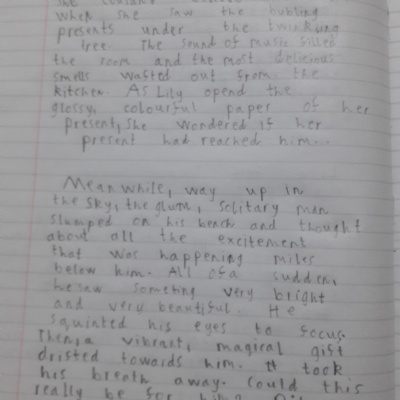 when she saw the bubling
presents under the twinkling
tree. The sound of music filled
the room and the most delicious
smells wafted out from the
kitchen. As Lily opend the
glossy, colourful paper of her
present, she wondered if her
present had reached him...
Meanwhile, way up in
the sky, the glum, solitary man
slumped on his bench and thought
about all the excitement
that was happening miles
below him. All of a sudden,
he saw someting very bright
and very beautiful. He
squinted his eyes to focus.
Then, a vibrant, magical gift
drifted towards him. It took
his breath away. Could this
really be for him?